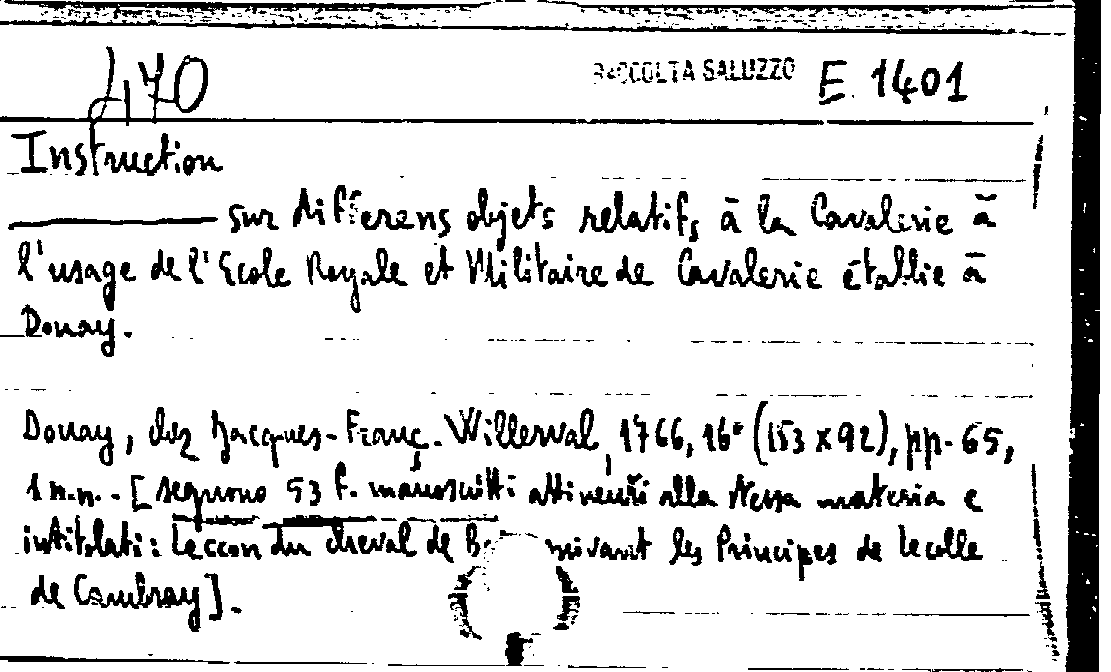 470 RACCOLTA SALUZZO E 1401
Instruction
——— sur differens objets relatifs à la Cavalerie à
l'usage de l'Ecole Royale et Militaire de Cavalerie établie à
Douay.
Douay, chez Jacques-Franç. Willerval, 1766, 16° (153 x 92), pp. 65,
1 n.n. - [seguono 53 f. manoscritti attinenti alla stessa materia e
intitolati: Leccon du cheval de suivant les Principes de lecolle
de Cambray].